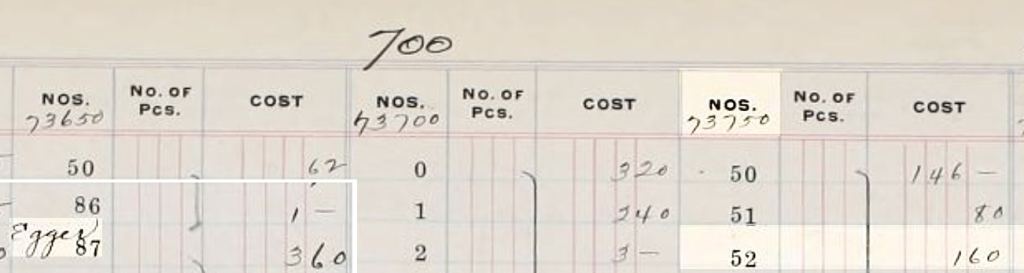 700
NOS. No. OF Pcs. COST NOS. No. OF Pcs. COST NOS. No. OF Pcs. COST
73650 73700 73750
50 62 0 320 50 146 —
86 1 — 1 240 51 80
Egger 87 360 2 3 — 52 160